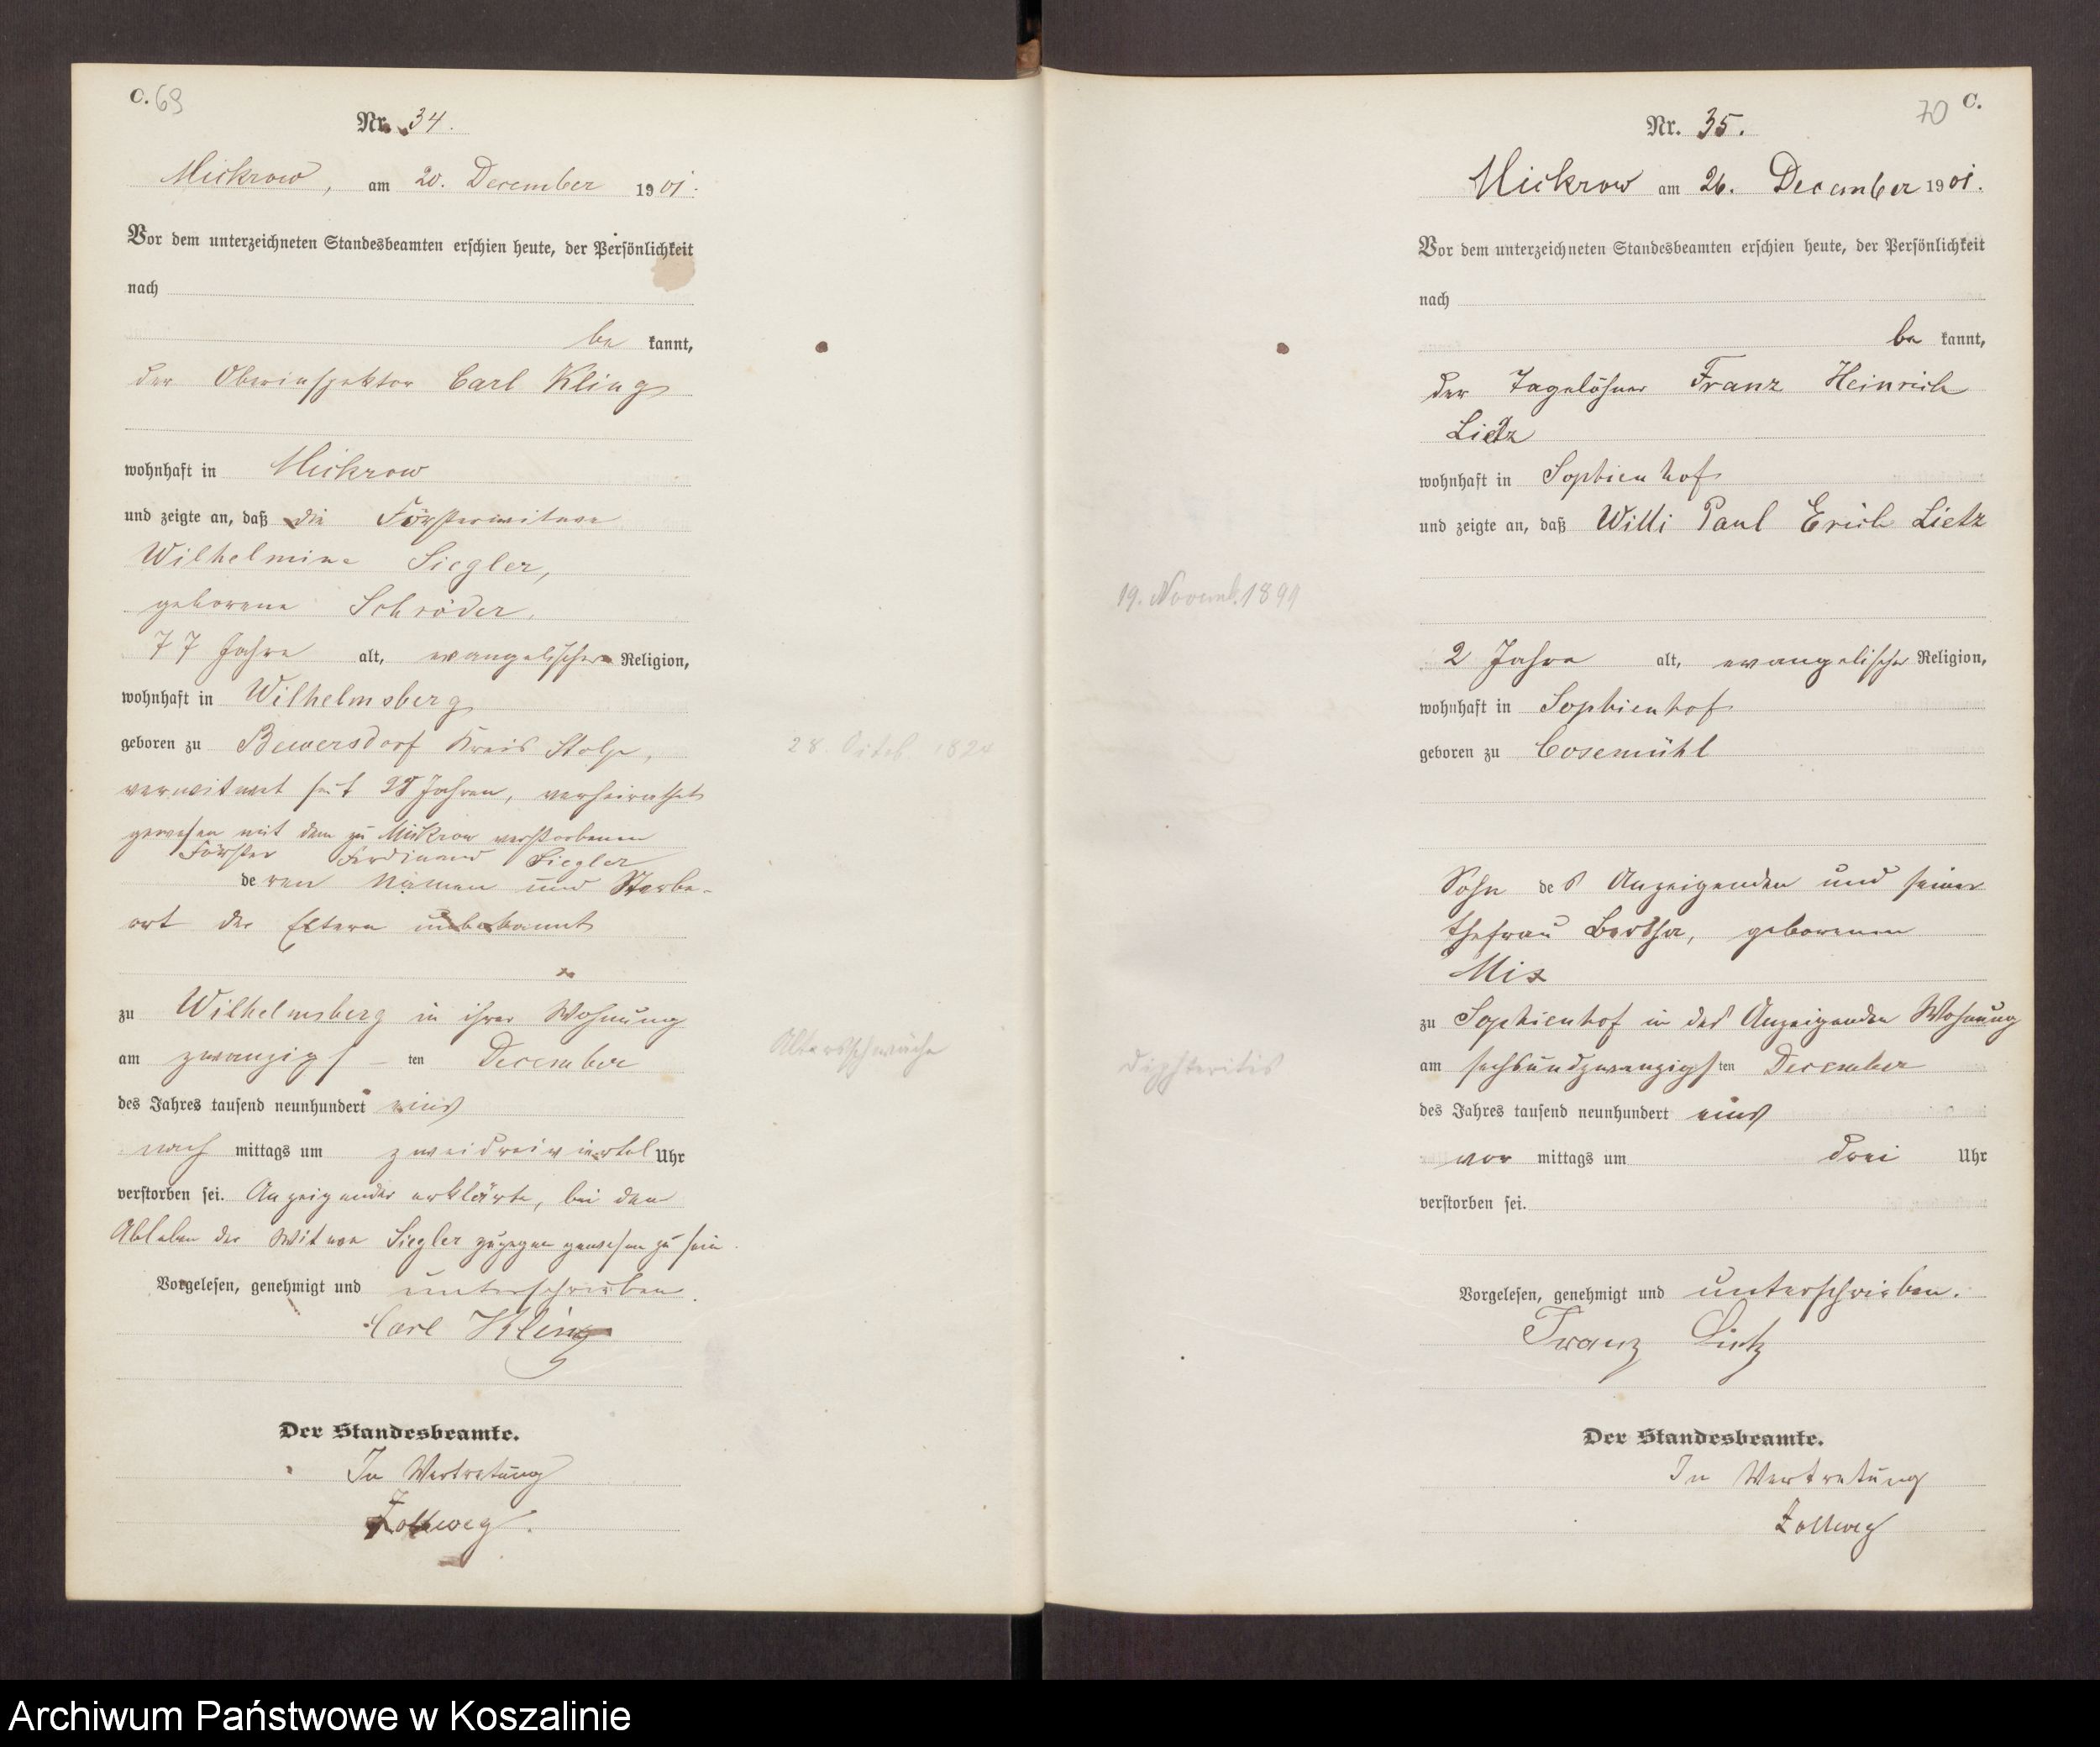 C. 69
Nr. 34.
Mickrow, am 20. December 1901.
Vor dem unterzeichneten Standesbeamten erschien heute, der Persönlichkeit
nach
be kannt,
der Oberinspektor Carl Kling
wohnhaft in Mickrow
und zeigte an, daß die Försterwitwe
Wilhelmine Siegler,
geborene Schröder,
77 Jahre alt, evangelischer Religion,
wohnhaft in Wilhelmsberg
geboren zu Bewersdorf Kreis Stolp,
28. Octob 1824
verwitwet seit Jahren, verheirathet
gewesen mit dem zu Mickrow verstorbenen
Förster Ferdinand Siegler
deren Namen und Sterbe-
ort der Eltern unbekannt
zu Wilhelmsberg in ihrer Wohnung
am zwanzigs ten December
Altersschwäche
des Jahres tausend neunhundert eins
nach mittags um zweidreiviertel Uhr
verstorben sei. Anzeigender erklärte, bei dem
Ableben der Witwe Siegler zugegen gewesen zu sein.
Vorgelesen, genehmigt und unterschrieben.
Carl Kling
Der Standesbeamte.
In Vertretung
Zollweg.
70 C.
Nr. 35.
Mickrow am 26. December 1901.
Vor dem unterzeichneten Standesbeamten erschien heute, der Persönlichkeit
nach
be kannt,
der Tagelöhner Franz Heinrich
Lietz
wohnhaft in Sophienhof
und zeigte an, daß Willi Paul Erich Lietz
19. Novemb. 1899
2 Jahre alt, evangelischer Religion,
wohnhaft in Sophienhof
geboren zu Cosemühl
Sohn des Anzeigenden und seiner
Ehefrau Bertha, geborenen
Mix
zu Sophienhof in des Anzeigenden Wohnung
am sechsundzwanzigsten December
Diphteritis
des Jahres tausend neunhundert eins
vor mittags um drei Uhr
verstorben sei.
Vorgelesen, genehmigt und unterschrieben.
Franz Lietz
Der Standesbeamte.
In Vertretung
Zollweg
Archiwum Państwowe w Koszalinie